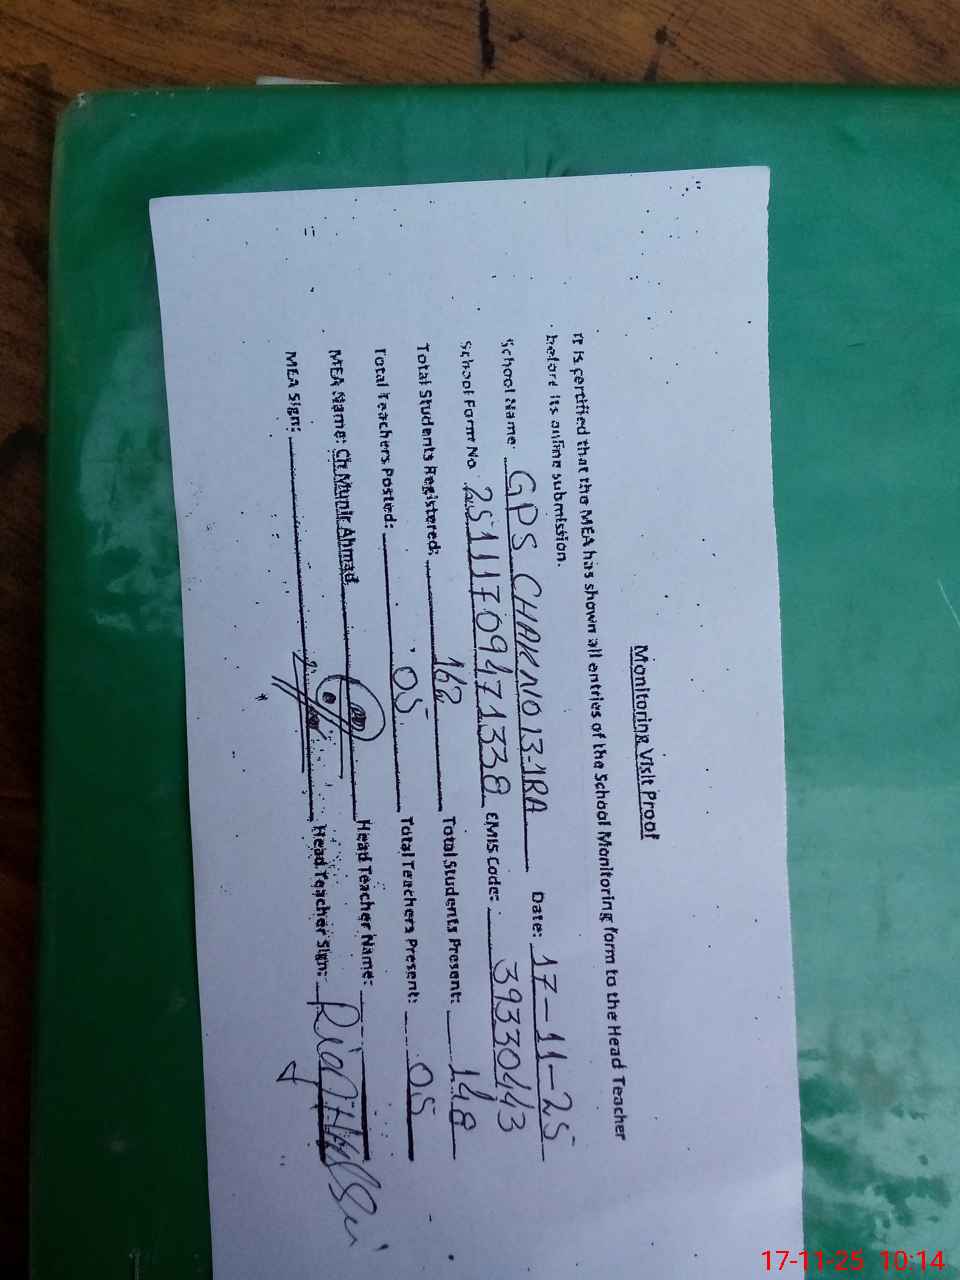 Monitoring Visit Proof
It is certified that the MEA has shown all entries of the School Monitoring form to the Head Teacher
before its online submission.
School Name: GPS CHAK NO 13-1RA Date: 17-11-25
School Form No. 25111709471338 EMIS Code: 39330443
Total Students Registered: 162 Total Students Present: 148
Total Teachers Posted: 05 Total Teachers Present: 05
MEA Name: Ch Munir Ahmad Head Teacher Name:
MEA Sign: Head Teacher Sign:
17-11-25 10:14